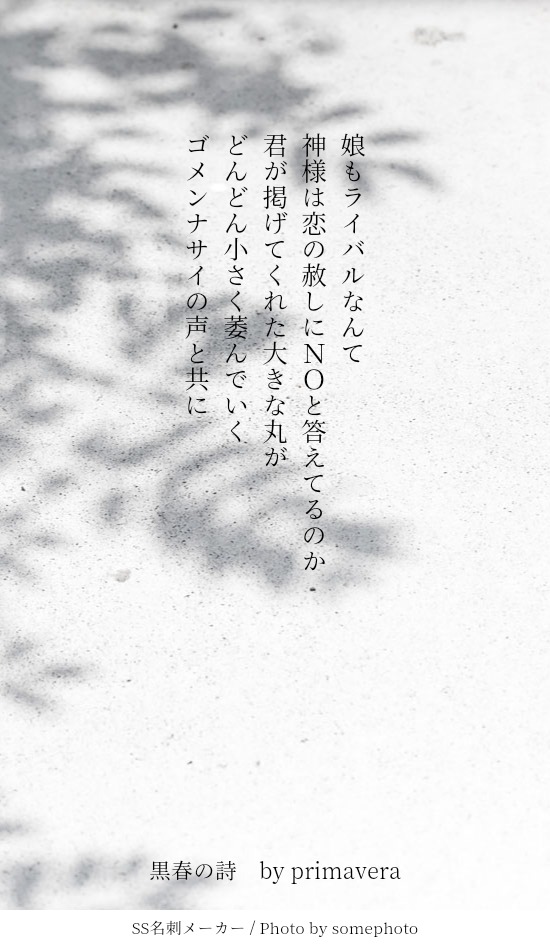 娘もライバルなんて
神様は恋の赦しにNOと答えてるのか
君が掲げてくれた大きな丸が
どんどん小さく萎んでいく
ゴメンナサイの声と共に
黒春の詩　by primavera
SS名刺メーカー / Photo by somephoto